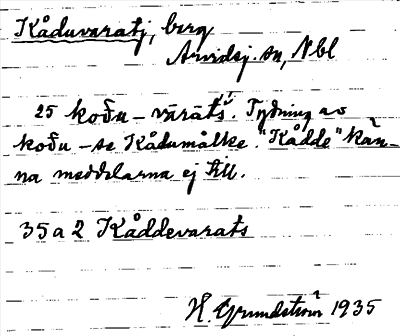 Kåduvaratj, berg
Arvidsj. sn, Nbl
25 koδu-vāràts´. Tydning av
koδu - se Kådumålke. "Kådde" kän-
na meddelarna ej till.
35 a 2 Kåddevarats
H. Grundström 1935